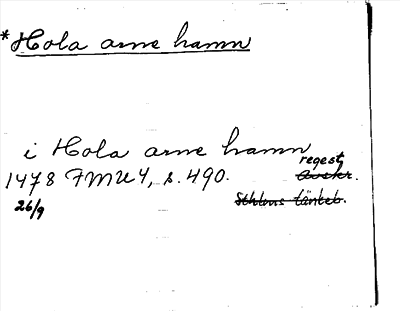 *Hola arne hamn
i Hola arne hamn
regest
1478 FMU 4, s. 490. Avskr.
26/9 Sthlms tänkeb.